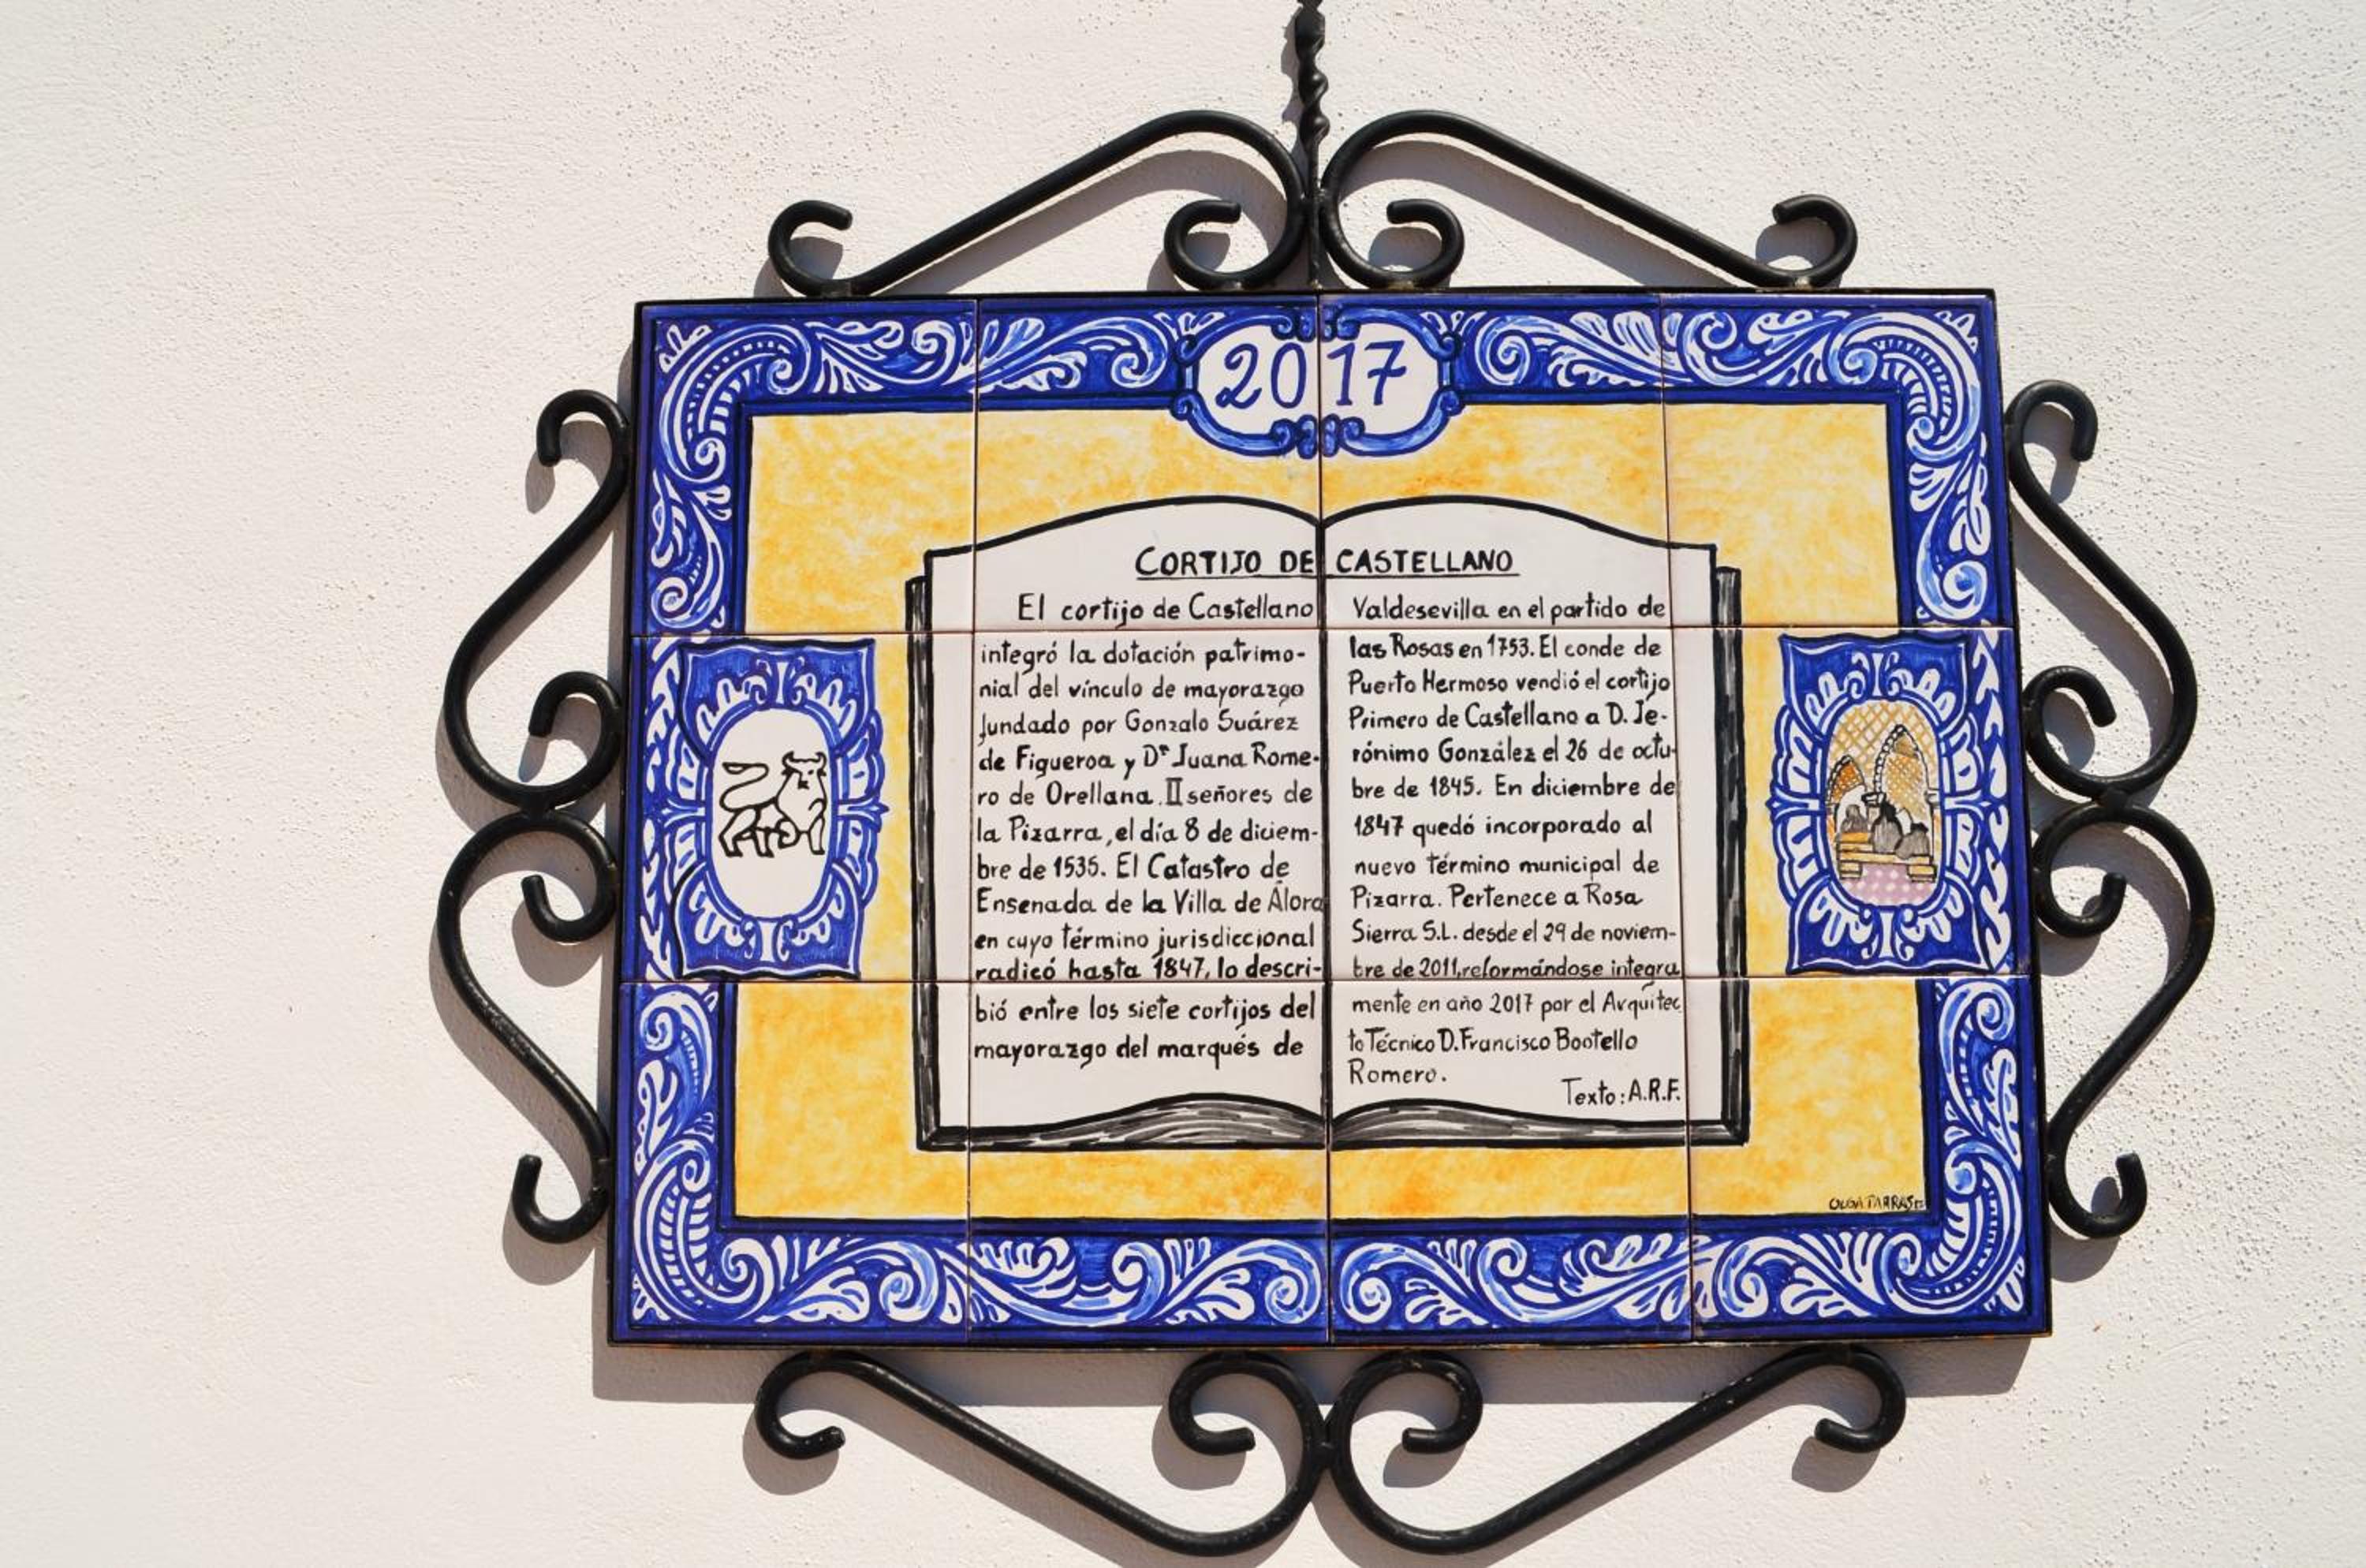 2017
CORTIJO DE CASTELLANO
El cortijo de Castellano
integró la dotación patrimo-
nial del vínculo de mayorazgo
fundado por Gonzalo Suárez
de Figueroa y Dª Juana Rome-
ro de Orellana. II señores de
la Pizarra, el día 8 de diciem-
bre de 1535. El Catastro de
Ensenada de la Villa de Álora
en cuyo término jurisdiccional
radicó hasta 1847, lo descri-
bió entre los siete cortijos del
mayorazgo del marqués de
Valdesevilla en el partido de
las Rosas en 1753. El conde de
Puerto Hermoso vendió el cortijo
Primero de Castellano a D. Je-
rónimo González el 26 de octu-
bre de 1845. En diciembre de
1847 quedó incorporado al
nuevo término municipal de
Pizarra. Pertenece a Rosa
Sierra S.L. desde el 29 de noviem-
bre de 2011, reformándose integra
mente en año 2017 por el Arquitec
to Técnico D. Francisco Bootello
Romero.
Texto: A.R.F.
OLGA PARRAS